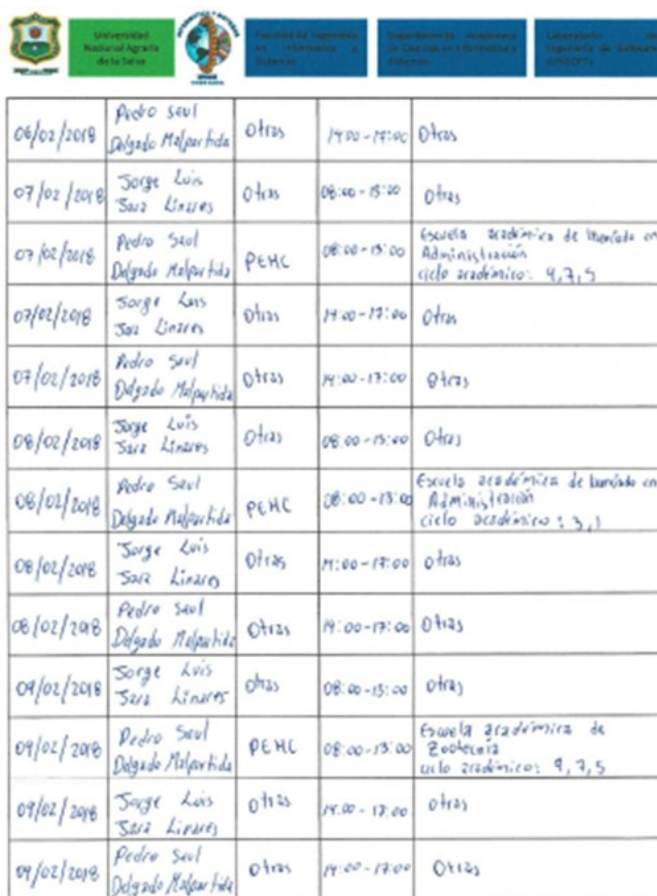 Universidad
Nacional Agraria
de la Selva
Facultad de Ingeniería
en Informática y
Sistemas
Departamento Académico
de Ciencias en Informática y
Sistemas
Laboratorio de
Ingeniería de Software
06/02/2018 Pedro Saul Delgado Malpartida Otras 14:00-17:00 Otras
07/02/2018 Jorge Luis Jara Linares Otras 08:00-13:00 Otras
07/02/2018 Pedro Saul Delgado Malpartida PEMC 08:00-13:00 Escuela académica de en
Administración
ciclo académico: 9,7,5
07/02/2018 Jorge Luis Jara Linares Otras 14:00-17:00 Otras
07/02/2018 Pedro Saul Delgado Malpartida Otras 14:00-17:00 Otras
08/02/2018 Jorge Luis Jara Linares Otras 08:00-13:00 Otras
08/02/2018 Pedro Saul Delgado Malpartida PEMC 08:00-13:00 Escuela académica de en
Administración
ciclo académico: 3,1
08/02/2018 Jorge Luis Jara Linares Otras 14:00-17:00 Otras
08/02/2018 Pedro Saul Delgado Malpartida Otras 14:00-17:00 Otras
09/02/2018 Jorge Luis Jara Linares Otras 08:00-13:00 Otras
09/02/2018 Pedro Saul Delgado Malpartida PEMC 08:00-13:00 Escuela académica de
Zootecnia
ciclo académico: 9,7,5
09/02/2018 Jorge Luis Jara Linares Otras 14:00-17:00 Otras
09/02/2018 Pedro Saul Delgado Malpartida Otras 14:00-17:00 Otras